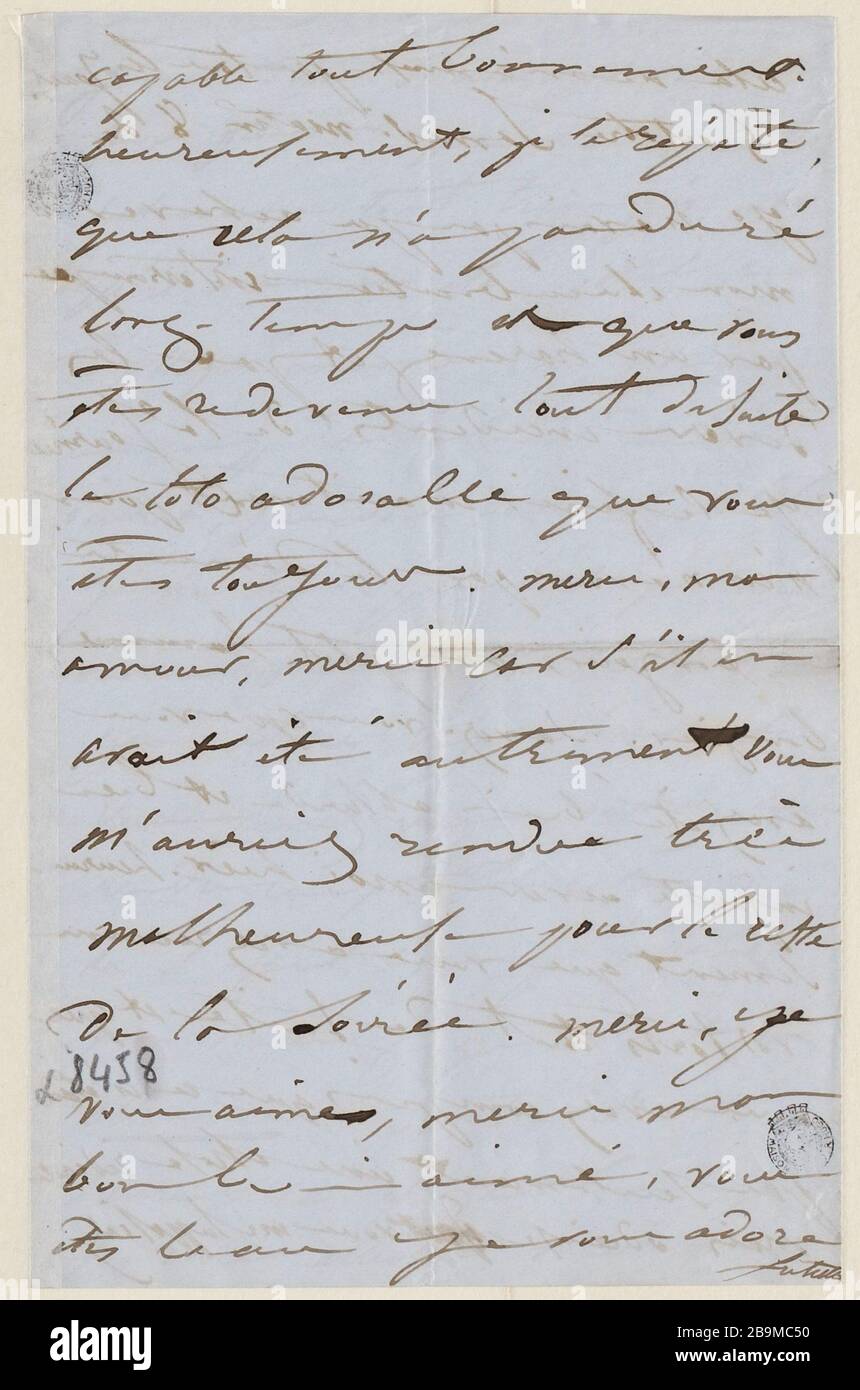 capable tout bonnement.
heureusement, je le répète,
que cela n'a pas duré
long-temps et que vous
êtes redevenu tout de suite
le toto adorable que vous
êtes toujours. merci, mon
amour, merci car s'il en
avait été autrement vous
m'auriez rendue très
malheureuse pour le reste
De la soirée. merci, je
L8458
vous aime, merci mon
bon bien-aimé, vous
êtes beau je vous adore
Juliette
alamy
Image ID: 2B9MC50
www.alamy.com